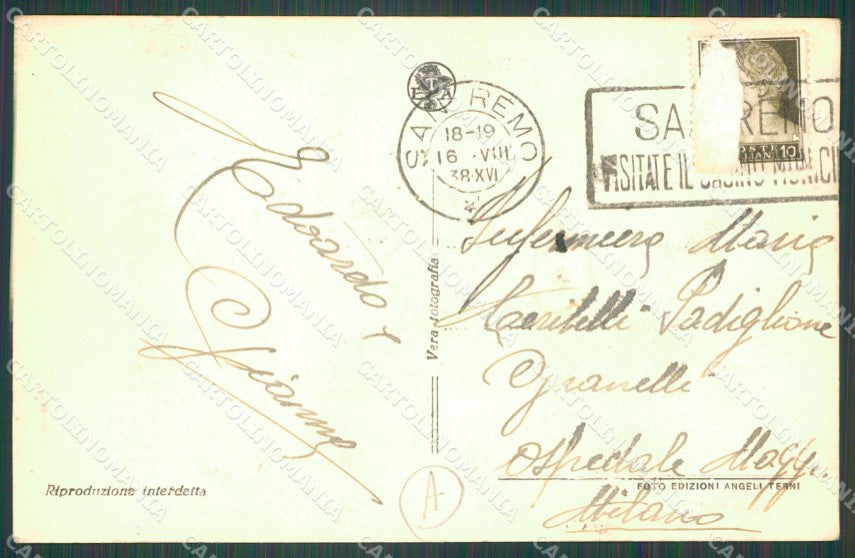 Edoardo e
Gianna
SAN REMO
18-19
16 . VIII
38.XVI
SANREMO
VISITATE IL CASINO MUNICI
POSTE
ITALIANE 10
Infermiera Maria
Padiglione
Granelli
Ospedale Magg.
Milano
Vera fotografia
Riproduzione interdetta
FOTO EDIZIONI ANGELI TERNI
A
CARTOLINOMANIA